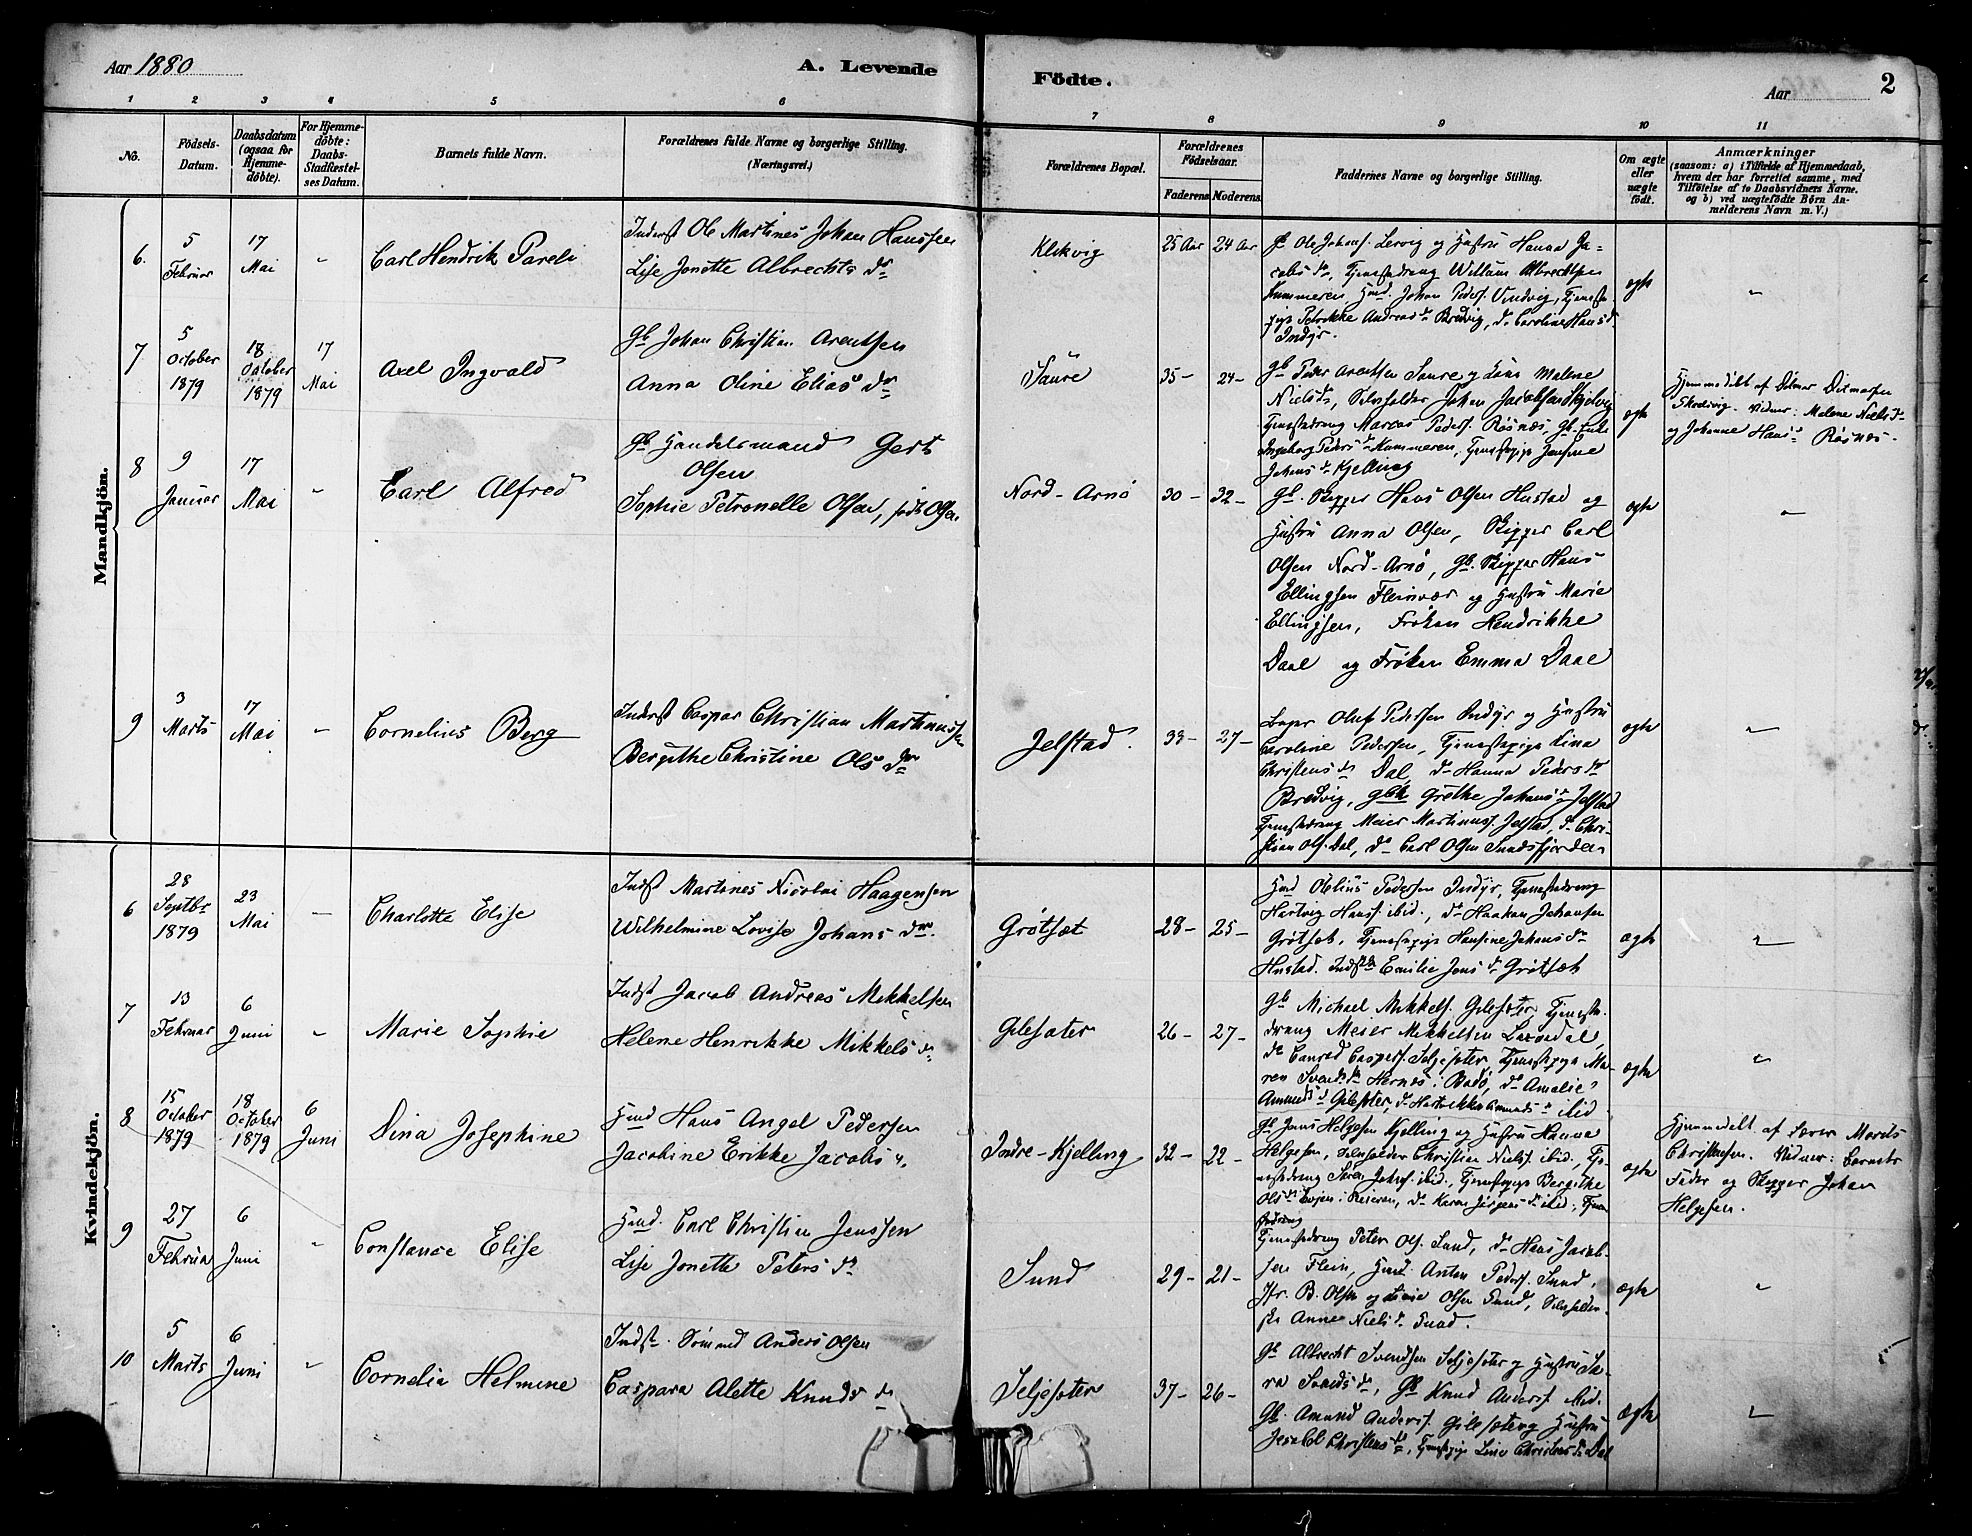 Aar 1880
A. Levende
Födte.
Aar
2
1 2 3 4 5 6 7 8 9 10 11
No.
Födsels-
Datum.
Daabsdatum
(ogsaa for
Hjemme-
döbte).
For Hjemme-
döbte:
Daabs-
Stadfæstel-
ses Datum.
Barnets fulde Navn.
Forældrenes fulde Navne og borgerlige Stilling.
(Næringsvei.)
Forældrenes Bopæl.
Forældrenes
Födselsaar.
Faderens Moderens
Faddernes Navne og borgerlige Stilling.
Om ægte
eller
uægte
födt.
Anmærkninger
(saasom: a) i Tilfælde af Hjemmedaab,
hvem der har forrettet samme, med
Tilföielse af to Daabsvidners Navne.
og b) ved uægtefödte Börn An-
melderens Navn m. V.)
Mandkjön.
6.
5
Februar
17
Mai
"
Carl Hendrik Pareli
Inderst Ole Martines Johan Hanssen
Lise Jonette Albrechts dr
Klikvig
25 Aar 24 Aar
Gb Ole Johans. Lervig og Hustru Hanna Ja-
cobs dr, Tjenestedreng Willum Albrechtsen
Kummeren, Hmd. Johan Peders. Vindvig, Tjeneste-
pige Petrikke Andreas dr Bredvig, do Caroline Hans d.
Indyr.
ægte
"
7
5
October
1879
18
October
1879
17
Mai
Axel Ingvald
Gb Johan Christian Arentsen
Anna Oline Elias dr
Saure
35 - 24 -
Gb Peder Arentsen Saure og Malene
Niels dr, Selvfolder Johan Jacobsen Skjelvig
Tjenestedreng Marcus Peders. Røsnæs, Gb. Enke
Ingeborg Peders dr Kummeren, Tjenestepige Jensine
Johans dr Kjelling
ægte
Hjemmedøbt af Ditmar Ditmarsen
Skodvig. Vidner: Malene Niels dr
og Johanne Hans dr Røsnæs.
8
9
Januar
17
Mai
"
Carl Alfred
Gb Handelsmand Gert
Olsen
Sophie Petronelle Olsen, født Olsen
Nord-Arnø
30 - 32 -
Gb. Skipper Hans Olsen Hustad og
Hustru Anna Olsen, Skipper Carl
Olsen Nord-Arnø, Gb. Skipper Hans
Ellingsen Fleinvær og Hustru Marie
Ellingsen, Frøken Hendrikke
Daae og Frøken Emma Daae
ægte
"
9
3
Marts
17
Mai
"
Cornelius Berg
Inderst Caspar Christian Martinussen
Bergithe Christine Ols dr
Jelstad.
33 - 27 -
Oluf Pedersen Indyr og Hustru
Caroline Pedersen, Tjenestepige Lina
Christens dr Dal, do Hanna Peders dr
Bredvig, Grethe Johans dr Jelstad
Tjenestedreng Meier Martinuss. Jelstad, do Chri-
stian Ols. Dal, do Carl Olsen Sundsfjorden
ægte
"
Kvindekjön.
6
28
Septbr
1879
23
Mai
"
Charlotte Elise
Indst Martines Nicolai Haagensen
Wilhelmine Lovise Johans dr.
Grøtsæt
28 - 25 -
Hmd Obelius Pedersen Indyr, Tjenestedreng
Hartvig Hanss. ibid., do Haakon Johansen
Grøtsæt, Tjenestepige Hansine Johans dr
Hustad. Indst. Emilie Jens dr Grøtsæt
ægte
"
7
13
Februar
6
Juni
"
Marie Sophie
Indst Jacob Andreas Mikkelsen
Helene Henrikke Mikkels dr
Gilesæter
26 - 27 -
Gb Michael Mikkels. Gilesæter, Tjeneste-
dreng Meier Mikkelsen
do Conrad Caspers. Seljesæter, Tjenestepige Ma-
ren Svends dr Hernes i Bodø, do Amalie
Amunds d Gilesæter, do Amunds dr ibid
ægte
"
8
15
October
1879
18
October
1879
6
Juni
Dina Josephine
Hmd Hans Angel Pedersen
Jacobine Erikke Jacobs d.
Indre-Kjelling
32 - 22 -
Gb Jens Helgesen Kjelling og Hustru Hanna
Helgesen, Selvfolder Christian Niels. ibid., Tje-
nestedreng Søren Johns. ibid., Tjenestepige Bergithe
Ols dr Evjen i Beieren, do Karen Jørgens dr ibid., Tjene-
stedreng
ægte
Hjemmedøbt af Lærer Morits
Christensen. Vidner: Barnets
Fader og Skipper Johan
Helgesen.
9
27
Februa
6
Juni
"
Constance Elise
Hmd. Carl Christian Jenssen
Lise Jonette Peters dr
Sund
29 - 21 -
Tjenestedreng Peter Ols. Sund, do Hans Jacob-
sen Flein, Hmd. Anton Peders. Sund,
B. Olsen og Olsen Sund,
Anne Niels dr Sund.
ægte
"
10
5
Marts
6
Juni
"
Cornelia Helmine
Indst. Sømand Anders Olsen
Caspara Alette Knuds dr
Seljesæter
37 - 26 -
Gb Albrecht Svendsen Seljesæter og Hustru Sa-
ra Svends dr, Gb Knud Anders.
Gb. Amund Anders. Gilesæter og Hustru
Christens dr, Tjenestepige Line Christens dr Dal
ægte
"